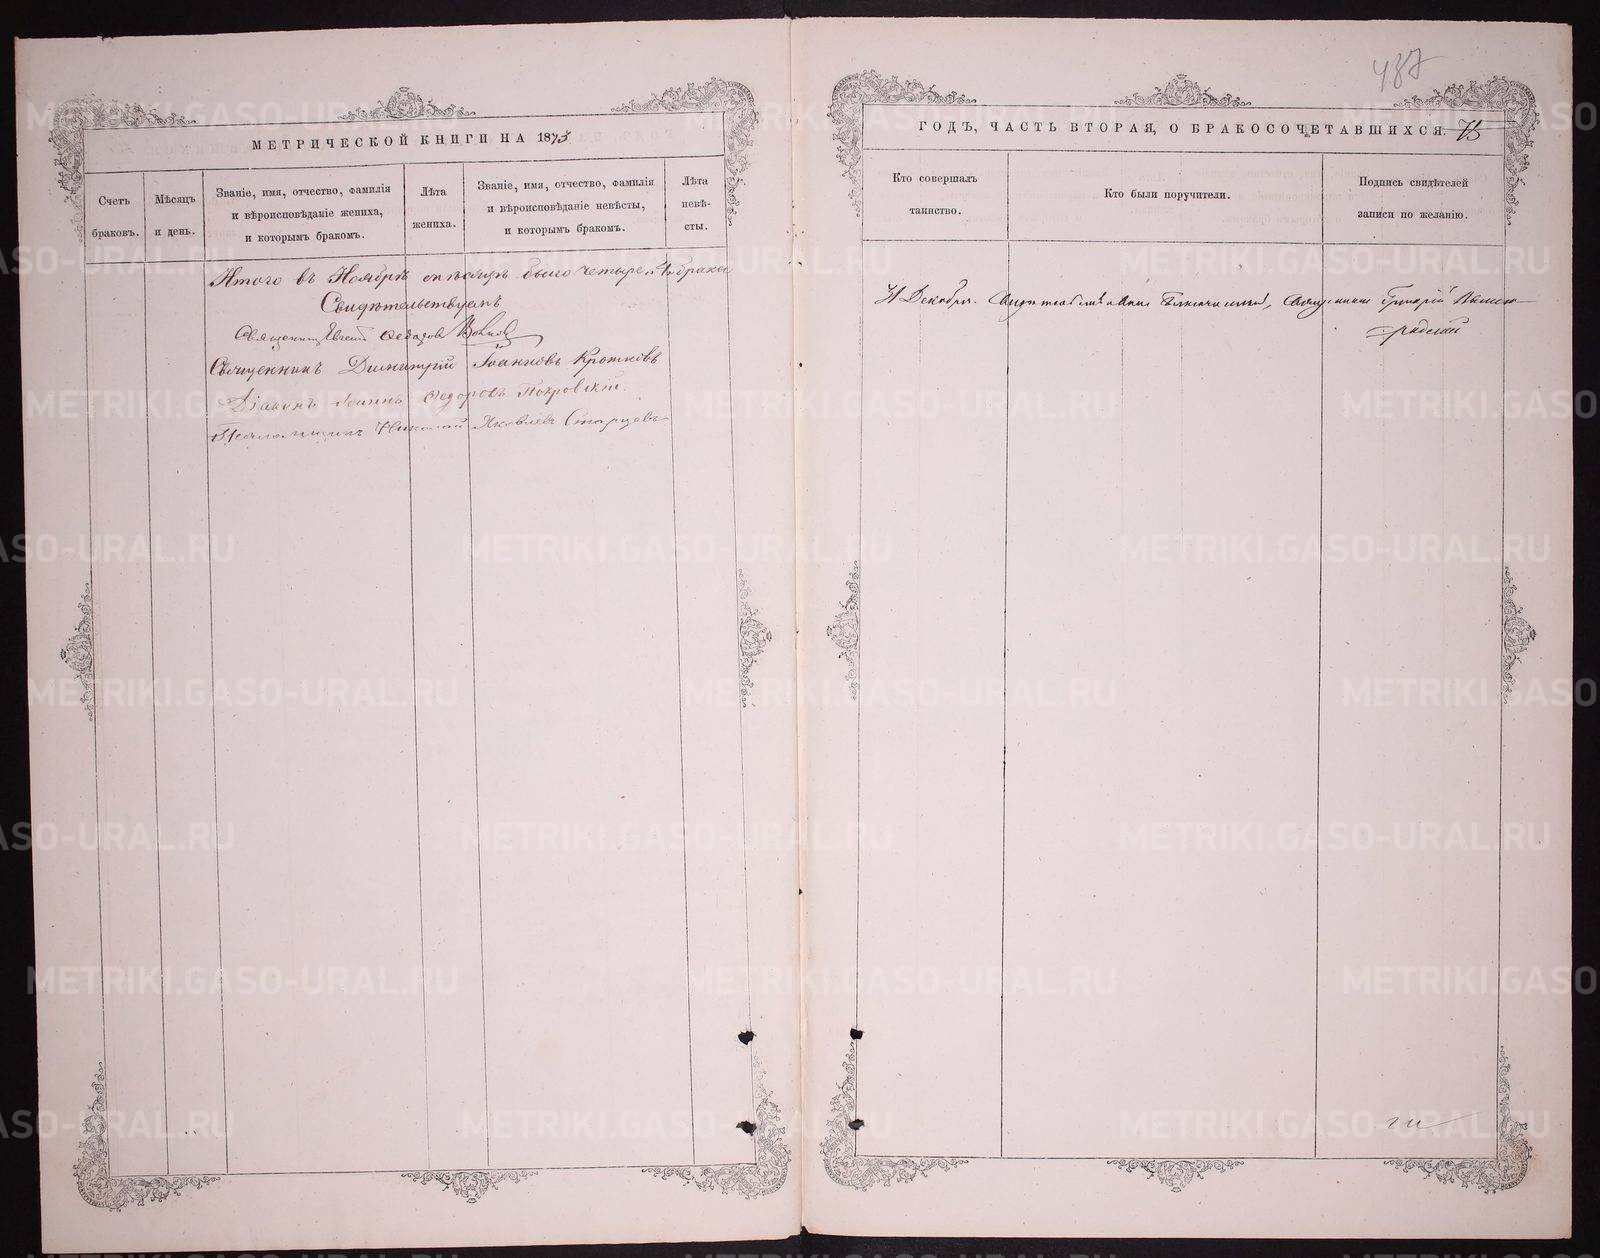 МЕТРИЧЕСКОЙ КНИГИ НА 1875
Счетъ браковъ.
Мѣсяцъ и день.
Званіе, имя, отчество, фамилія и вѣроисповѣданіе жениха, и которымъ бракомъ.
Лѣта жениха.
Званіе, имя, отчество, фамилія и вѣроисповѣданіе невѣсты, и которымъ бракомъ.
Лѣта невѣсты.
Итого въ Ноябрѣ мѣсяцѣ было четыре 4 брака
Свидѣтельствуемъ
Священникъ Евгеній Ѳедоровъ
Священникъ Димитрій Іоанновъ Кротковъ
Діаконъ Іоаннъ Ѳедоровъ Покровскій.
Псаломщикъ Николай Яковлевъ Старцевъ
487
ГОДЪ, ЧАСТЬ ВТОРАЯ, О БРАКОСОЧЕТАВШИХСЯ. 75
Кто совершалъ таинство.
Кто были поручители.
Подпись свидѣтелей записи по желанію.
31 Декабря. Священникъ Григорій
METRIKI.GASO-URAL.RU